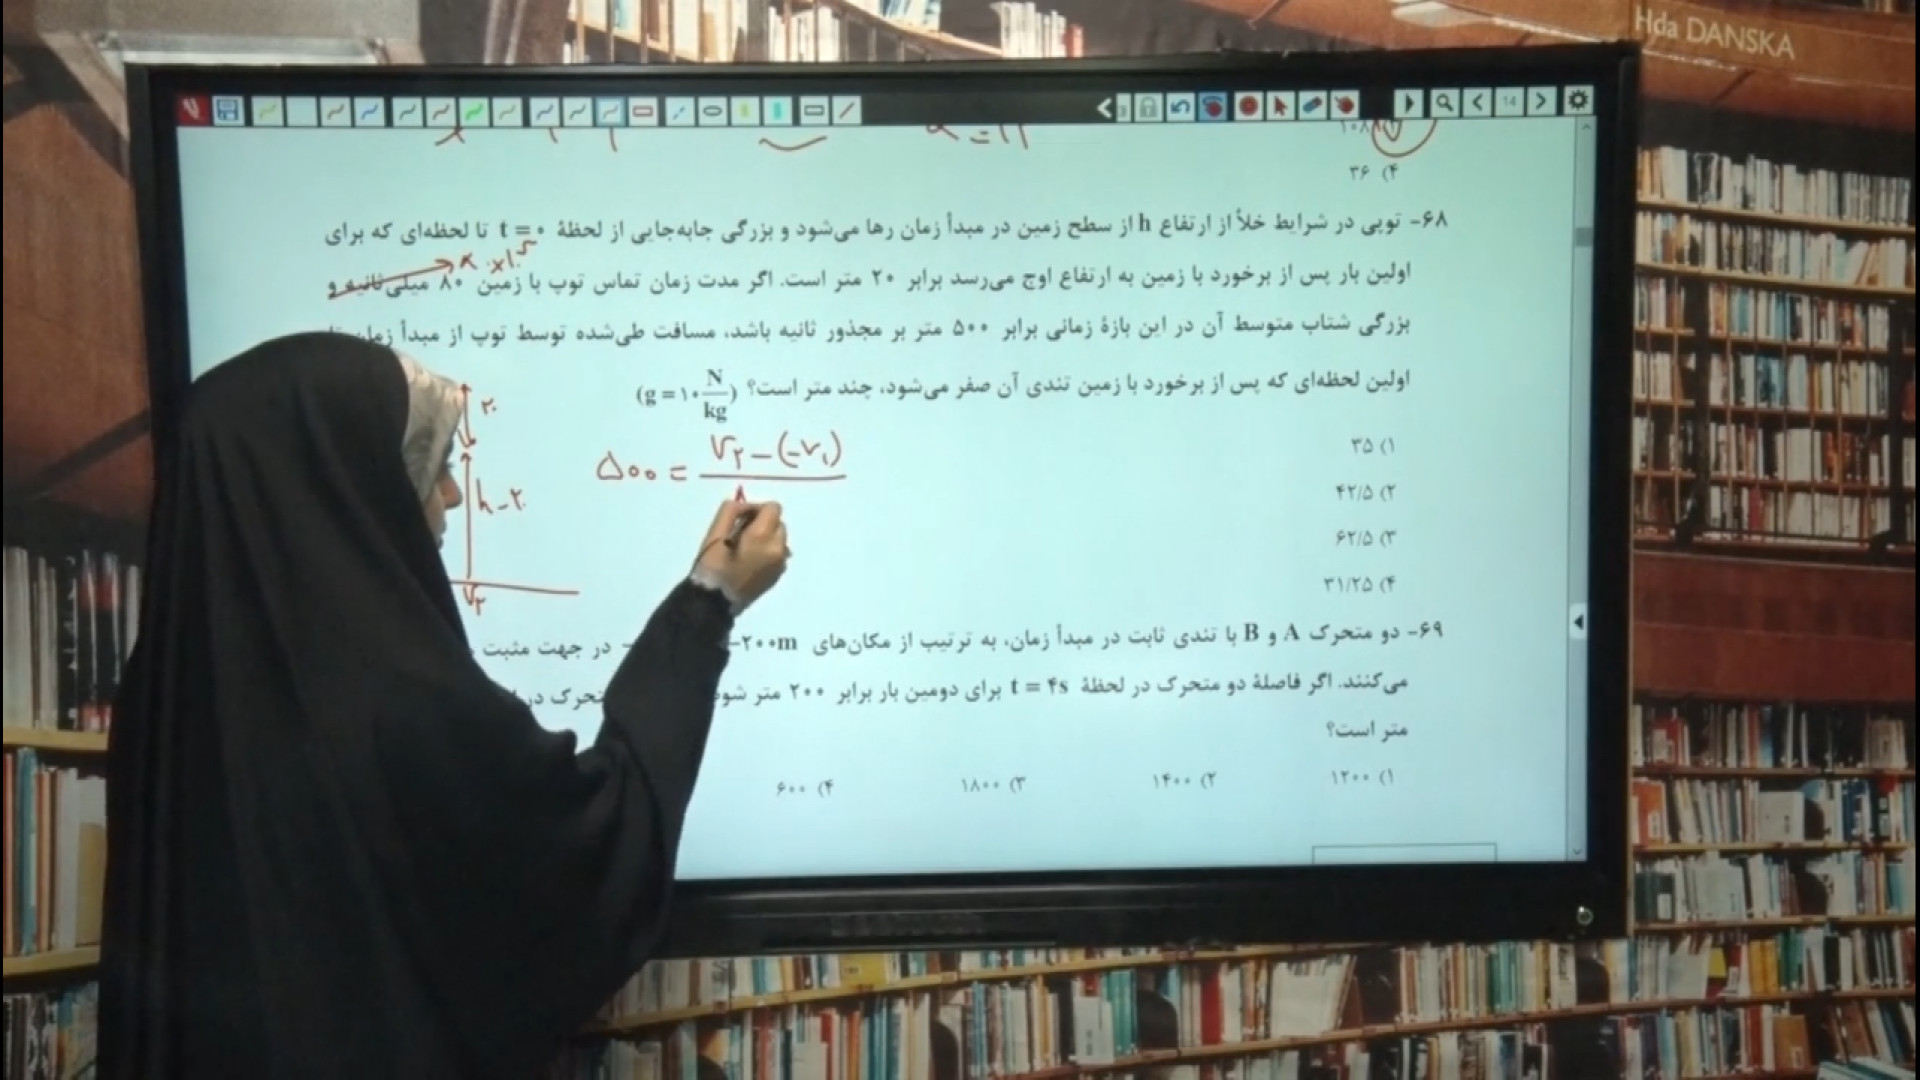 Hda DANSKA
14
۱۰۸
۴) ۳۶
۶۸- توپی در شرایط خلأ از ارتفاع h از سطح زمین در مبدأ زمان رها می‌شود و بزرگی جابه‌جایی از لحظهٔ t = ۰ تا لحظه‌ای که برای
اولین بار پس از برخورد با زمین به ارتفاع اوج می‌رسد برابر ۲۰ متر است. اگر مدت زمان تماس توپ با زمین ۸۰ میلی‌ثانیه و
بزرگی شتاب متوسط آن در این بازهٔ زمانی برابر ۵۰۰ متر بر مجذور ثانیه باشد، مسافت طی‌شده توسط توپ از مبدأ زمان تا
اولین لحظه‌ای که پس از برخورد با زمین تندی آن صفر می‌شود، چند متر است؟ (g = ۱۰ N/kg)
۲۰
h - ۲۰
V۲
۵۰۰ = V۲ - (-V۱)
۱) ۳۵
۲) ۴۲/۵
۳) ۶۲/۵
۴) ۳۱/۲۵
۶۹- دو متحرک A و B با تندی ثابت در مبدأ زمان، به ترتیب از مکان‌های -۲۰۰m در جهت مثبت
می‌کنند. اگر فاصلهٔ دو متحرک در لحظهٔ t = ۴s برای دومین بار برابر ۲۰۰ متر شود
متر است؟
۱) ۱۲۰۰ ۲) ۱۴۰۰ ۳) ۱۸۰۰ ۴) ۶۰۰